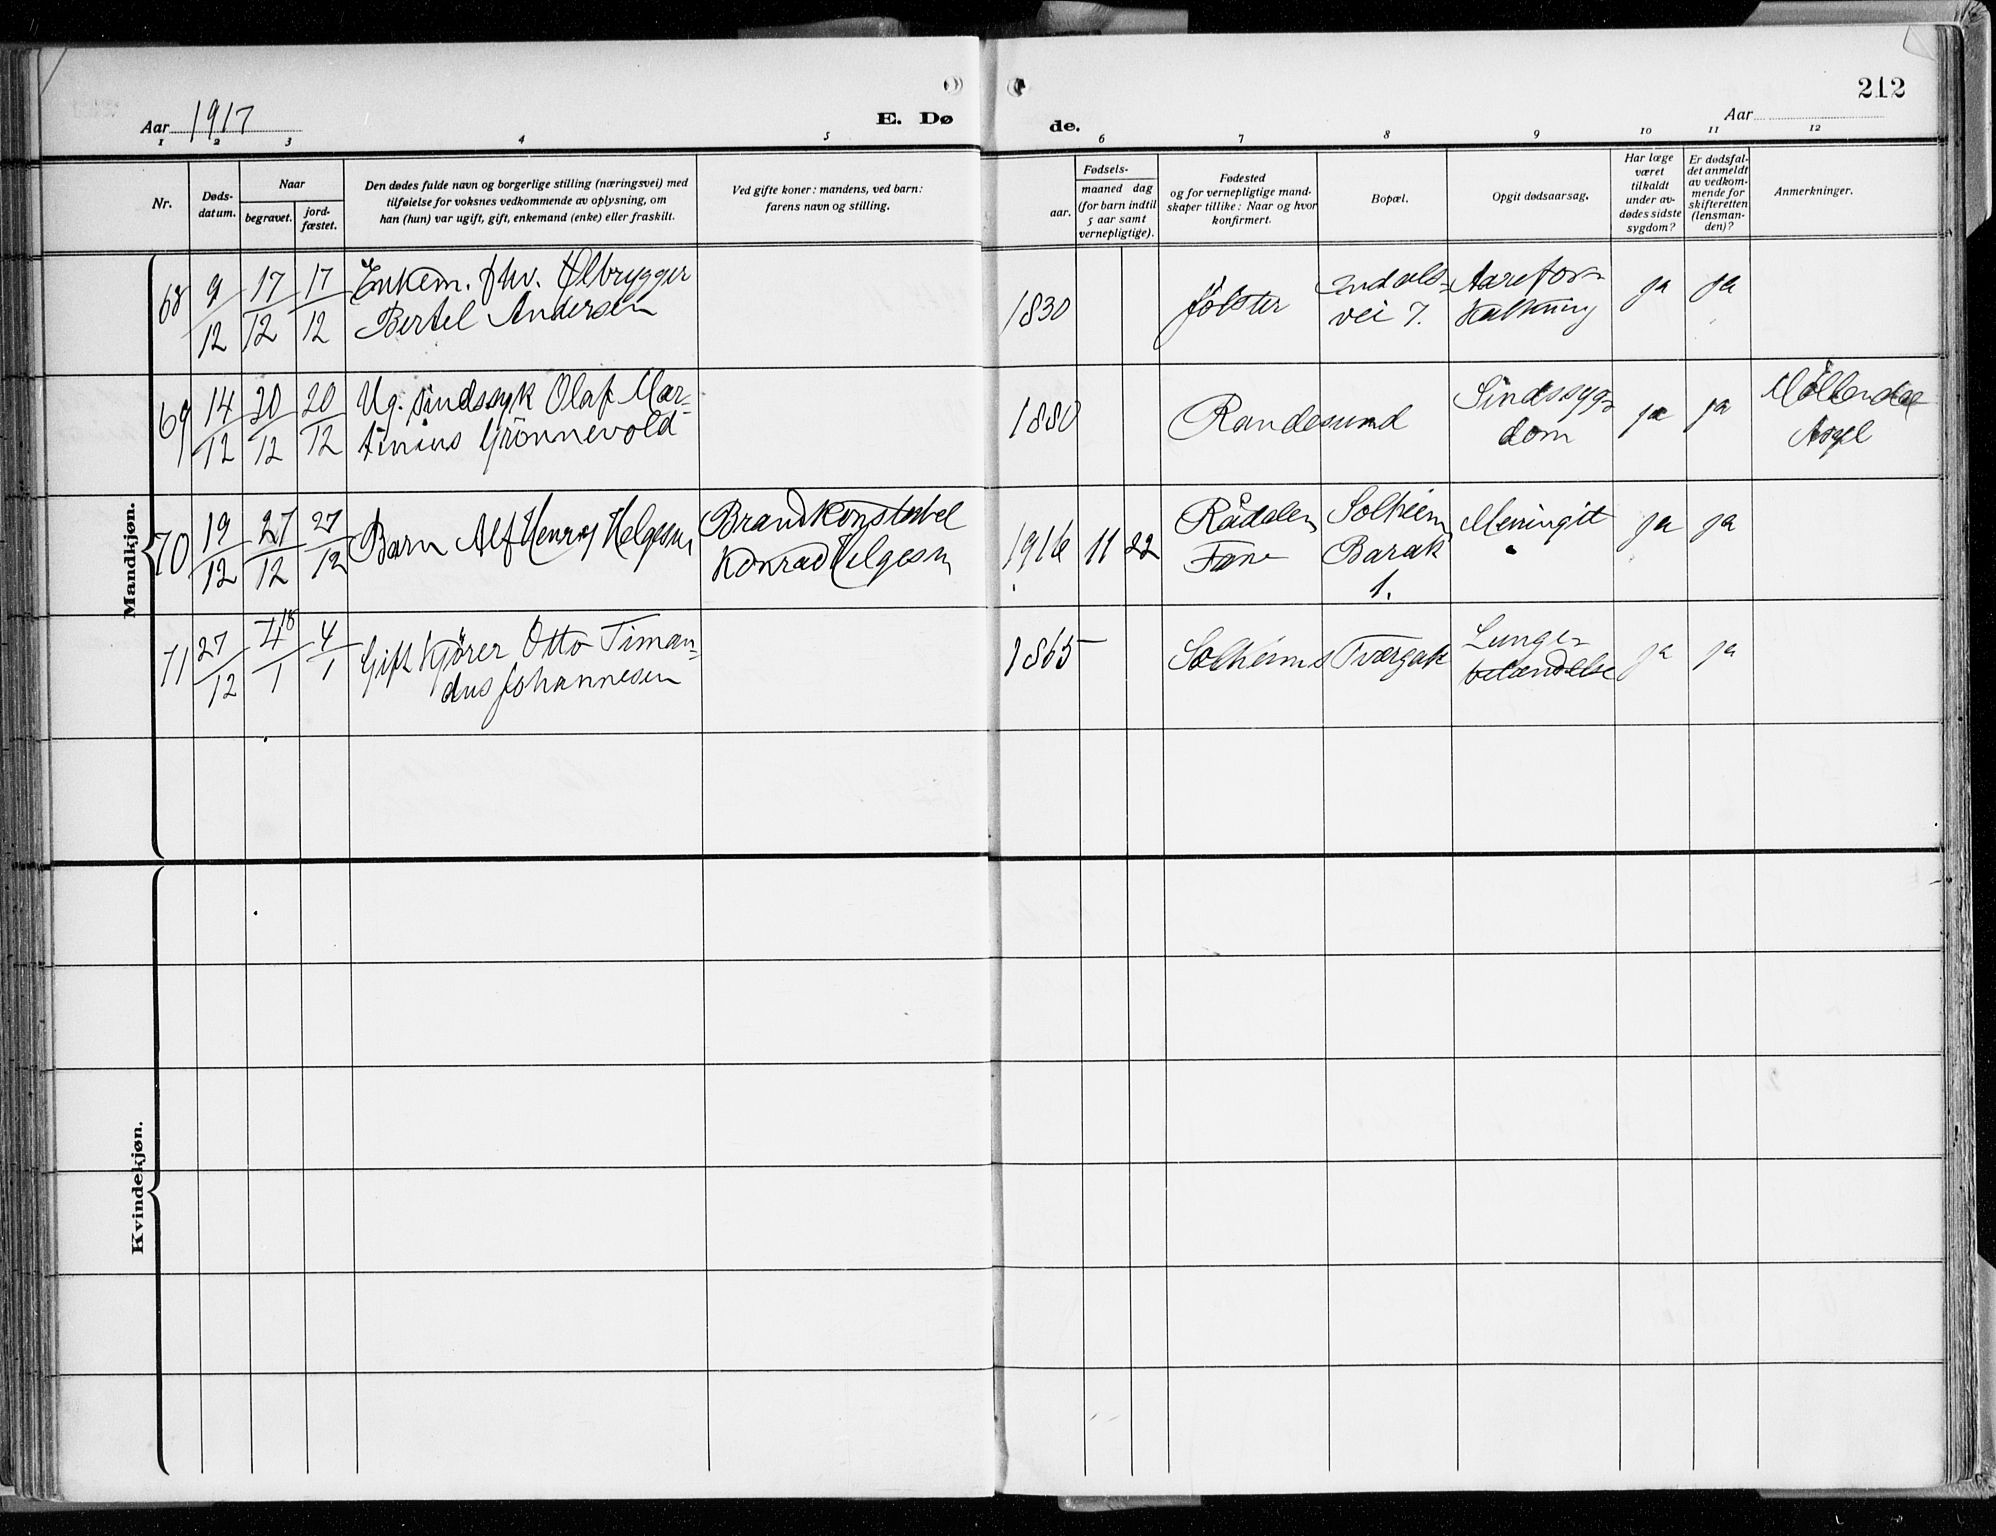 212
Aar 1917
E. Dø
de.
Aar
1 2 3 4 5 6 7 8 9 10 11 12
Nr.
Døds-
datum.
Naar
begravet.
jord-
fæstet.
Den dødes fulde navn og borgerlige stilling (næringsvei) med
tilføielse for voksnes vedkommende av oplysning, om
han (hun) var ugift, gift, enkemand (enke) eller fraskilt.
Ved gifte koner: mandens, ved barn:
farens navn og stilling.
Fødsels-
aar.
maaned dag
(for barn indtil
5 aar samt
vernepligtige).
Fødested
og for vernepligtige mand-
skaper tillike: Naar og hvor
konfirmert.
Bopæl.
Opgit dødsaarsag.
Har læge
været
tilkaldt
under av-
dødes sidste
sygdom?
Er dødsfal-
det anmeldt
av vedkom-
mende for
skifteretten
(lensman-
den)?
Anmerkninger.
Mandkjøn.
68 9/12 17/12 17/12
Enkem. fhv. Ølbrygger
Bertel Andersen
1830
Jölster
vei 7.
Aarefor-
kalkning
ja
ja
69 14/12 20/12 20/12
Ug. sindssyk Olaf Mar-
tinius Grönnevold
1880
Randesund
Sindssyg-
dom
ja
ja
Möllendal
Asyl
70 19/12 27/12 27/12
Barn Alf Henry Helgesen
Brandkonstabel
Konrad Helgesen
1916 11 22
Rådalen
Fane
Solheim
Barak
1.
Meningit
ja
ja
71 27/12 4/1 18 4/1
Gift Kjörer Otto Timan-
dus Johannesen
1865
Solheims Tværgate
Lunge-
betændelse
ja
ja
Kvindekjøn.